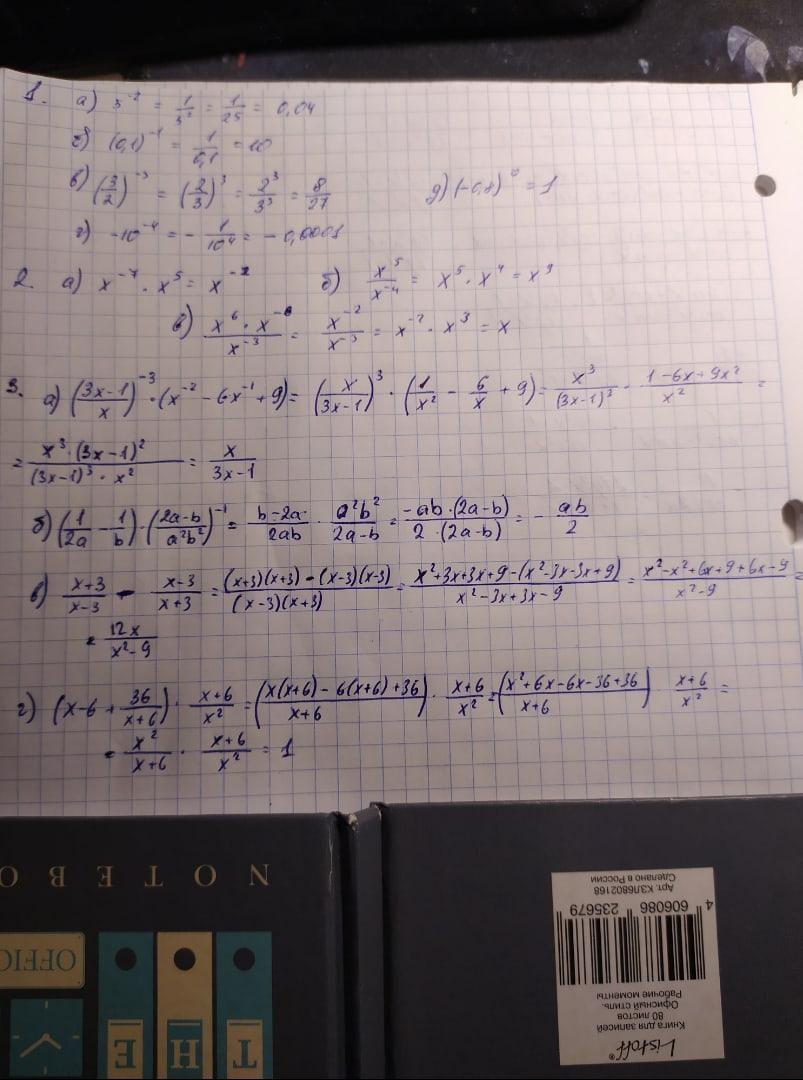 1. а) 5⁻² = 1/5² = 1/25 = 0,04
б) (0,1)⁻¹ = 1/0,1 = 10
в) (3/2)⁻³ = (2/3)³ = 2³/3³ = 8/27
д) (-0,8)⁰ = 1
г) -10⁻⁴ = - 1/10⁴ = - 0,0001
2. а) x⁻⁷ · x⁵ = x⁻² б) x⁵/x⁻⁴ = x⁵ · x⁴ = x⁹
в) (x⁶ · x⁻⁸)/x⁻³ = x⁻²/x⁻³ = x⁻² · x³ = x
3. а) ((3x-1)/x)⁻³ · (x⁻² - 6x⁻¹ + 9) = (x/(3x-1))³ · (1/x² - 6/x + 9) = x³/(3x-1)³ · (1-6x+9x²)/x² =
= (x³ · (3x-1)²)/((3x-1)³ · x²) = x/(3x-1)
б) (1/2a - 1/b) · ((2a-b)/a²b²)⁻¹ = (b-2a)/2ab · a²b²/(2a-b) = (-ab · (2a-b))/(2 · (2a-b)) = - ab/2
в) (x+3)/(x-3) - (x-3)/(x+3) = ((x+3)(x+3) - (x-3)(x-3))/((x-3)(x+3)) = (x²+3x+3x+9-(x²-3x-3x+9))/(x²-3x+3x-9) = (x²-x²+6x+9+6x-9)/(x²-9) =
= 12x/(x²-9)
г) (x-6 + 36/(x+6)) · (x+6)/x² = ((x(x+6) - 6(x+6) + 36)/(x+6)) · (x+6)/x² = ((x²+6x-6x-36+36)/(x+6)) · (x+6)/x² =
= x²/(x+6) · (x+6)/x² = 1
NOTEBO
OFFIC
THE
Listoff®
Книга для записей
80 листов
Офисный стиль.
Рабочие моменты
4 606086 235679
Арт. КЗЛ6802168
Сделано в России